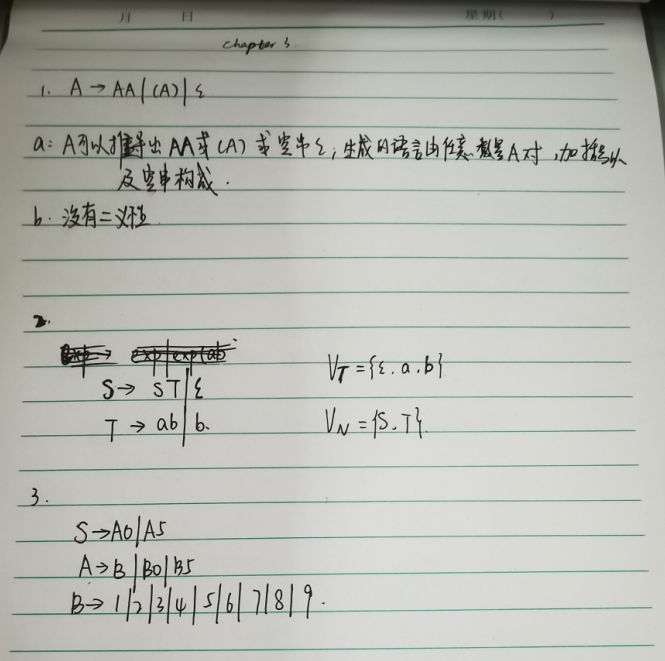 月 日 星期( )
chapter 3
1. A → AA | (A) | ε
a: A可以推导出AA或(A)或空串ε,生成的语言由任意数量A对,加括号以
及空串构成.
b. 没有二义性
2.
S → ST | ε VT = {ε, a, b}
T → ab | b. VN = {S, T}.
3.
S → A0 | A5
A → B | B0 | B5
B → 1 | 2 | 3 | 4 | 5 | 6 | 7 | 8 | 9.